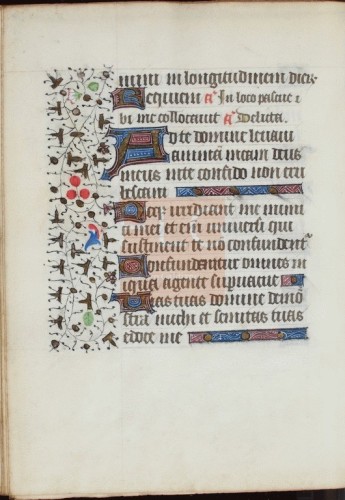 mini in longitudinem dier
Requiem a In loco pascue i
bi me collocavit a Delicta.
Ad te domine levavi
animam meam deus
meus in te confido non eru
bescam
Neque irrideant me inimi
ci mei et eni universi qui
sustinent te non confundent
Confundentur omnes in
iqua agentes supvacue
Vias tuas domine demo
stra michi et semitas tuas
edoce me